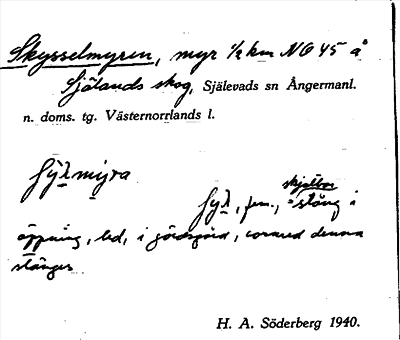 Skysselmyren, myr ½ km NO 45 å
Själands skog, Själevads sn Ångermanl.
n. doms. tg. Västernorrlands l.
fem., stång i
öppning, led, i gärdsgård, varmed denna
stänges
H. A. Söderberg 1940.